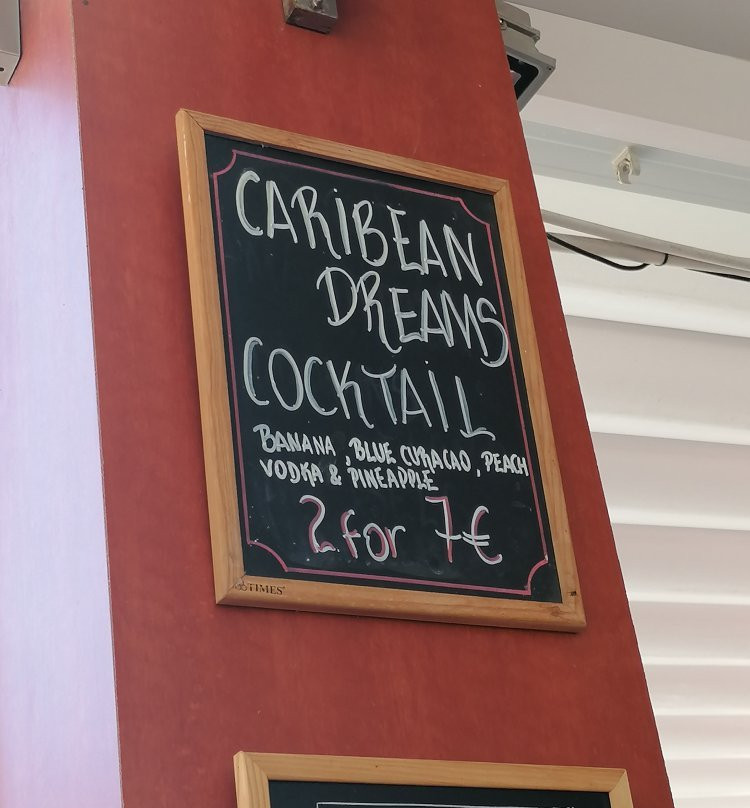 CARIBEAN
DREAMS
COCKTAIL
BANANA, BLUE CURACAO, PEACH
VODKA & PINEAPPLE
2 for 7€